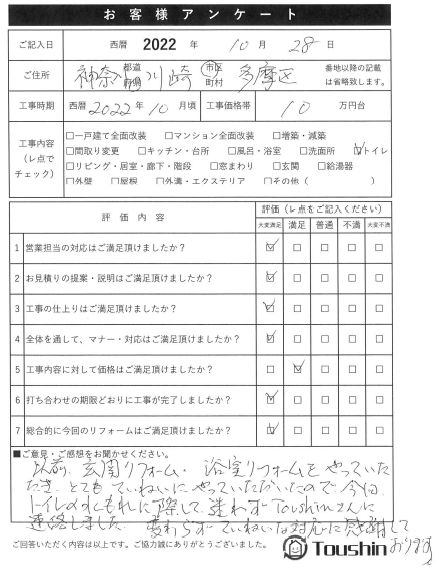 お客様アンケート
ご記入日 西暦 2022 年 10 月 28 日
ご住所 神奈川 都道府県 川崎 市区町村 多摩区 番地以降の記載は省略致します。
工事時期 西暦 2022 年 10 月頃 工事価格帯 10 万円台
工事内容（レ点でチェック）
□一戸建て全面改装 □マンション全面改装 □増築・減築
□間取り変更 □キッチン・台所 □風呂・浴室 □洗面所 ☑トイレ
□リビング・居室・廊下・階段 □窓まわり □玄関 □給湯器
□外壁 □屋根 □外溝・エクステリア □その他（ ）
評価内容 評価（レ点をご記入ください）
大変満足 満足 普通 不満 大変不満
1 営業担当の対応はご満足頂けましたか？ ☑ □ □ □ □
2 お見積りの提案・説明はご満足頂けましたか？ ☑ □ □ □ □
3 工事の仕上りはご満足頂けましたか？ ☑ □ □ □ □
4 全体を通して、マナー・対応はご満足頂けましたか？ ☑ □ □ □ □
5 工事内容に対して価格はご満足頂けましたか？ □ ☑ □ □ □
6 打ち合わせの期限どおりに工事が完了しましたか？ ☑ □ □ □ □
7 総合的に今回のリフォームはご満足頂けましたか？ ☑ □ □ □ □
■ご意見・ご感想をお聞かせください。
以前、玄関リフォーム・浴室リフォームをやっていた
だき、とてもていねいにやっていただいたので、今回、
トイレの水もれに際して、迷わずToushinさんに
連絡しました。変わらずていねいな対応に感謝して
おります。
ご回答いただく内容は以上です。ご協力誠にありがとうございました。
Toushin